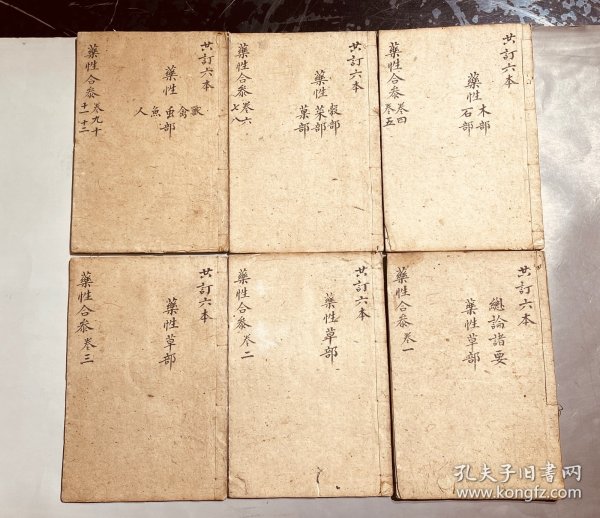 共訂六本
木部
藥性
石部
藥性合參 卷四
卷五
共訂六本
穀部
藥性 菜部
菓部
藥性合參 卷六
七八
共訂六本
藥性
獸禽虫魚人
部
藥性合參 卷九十
十一十二
共訂六本
總論諸要
藥性草部
藥性合參 卷一
共訂六本
藥性草部
藥性合參 卷二
共訂六本
藥性草部
藥性合參 卷三
孔夫子旧书网
www.kongfz.com